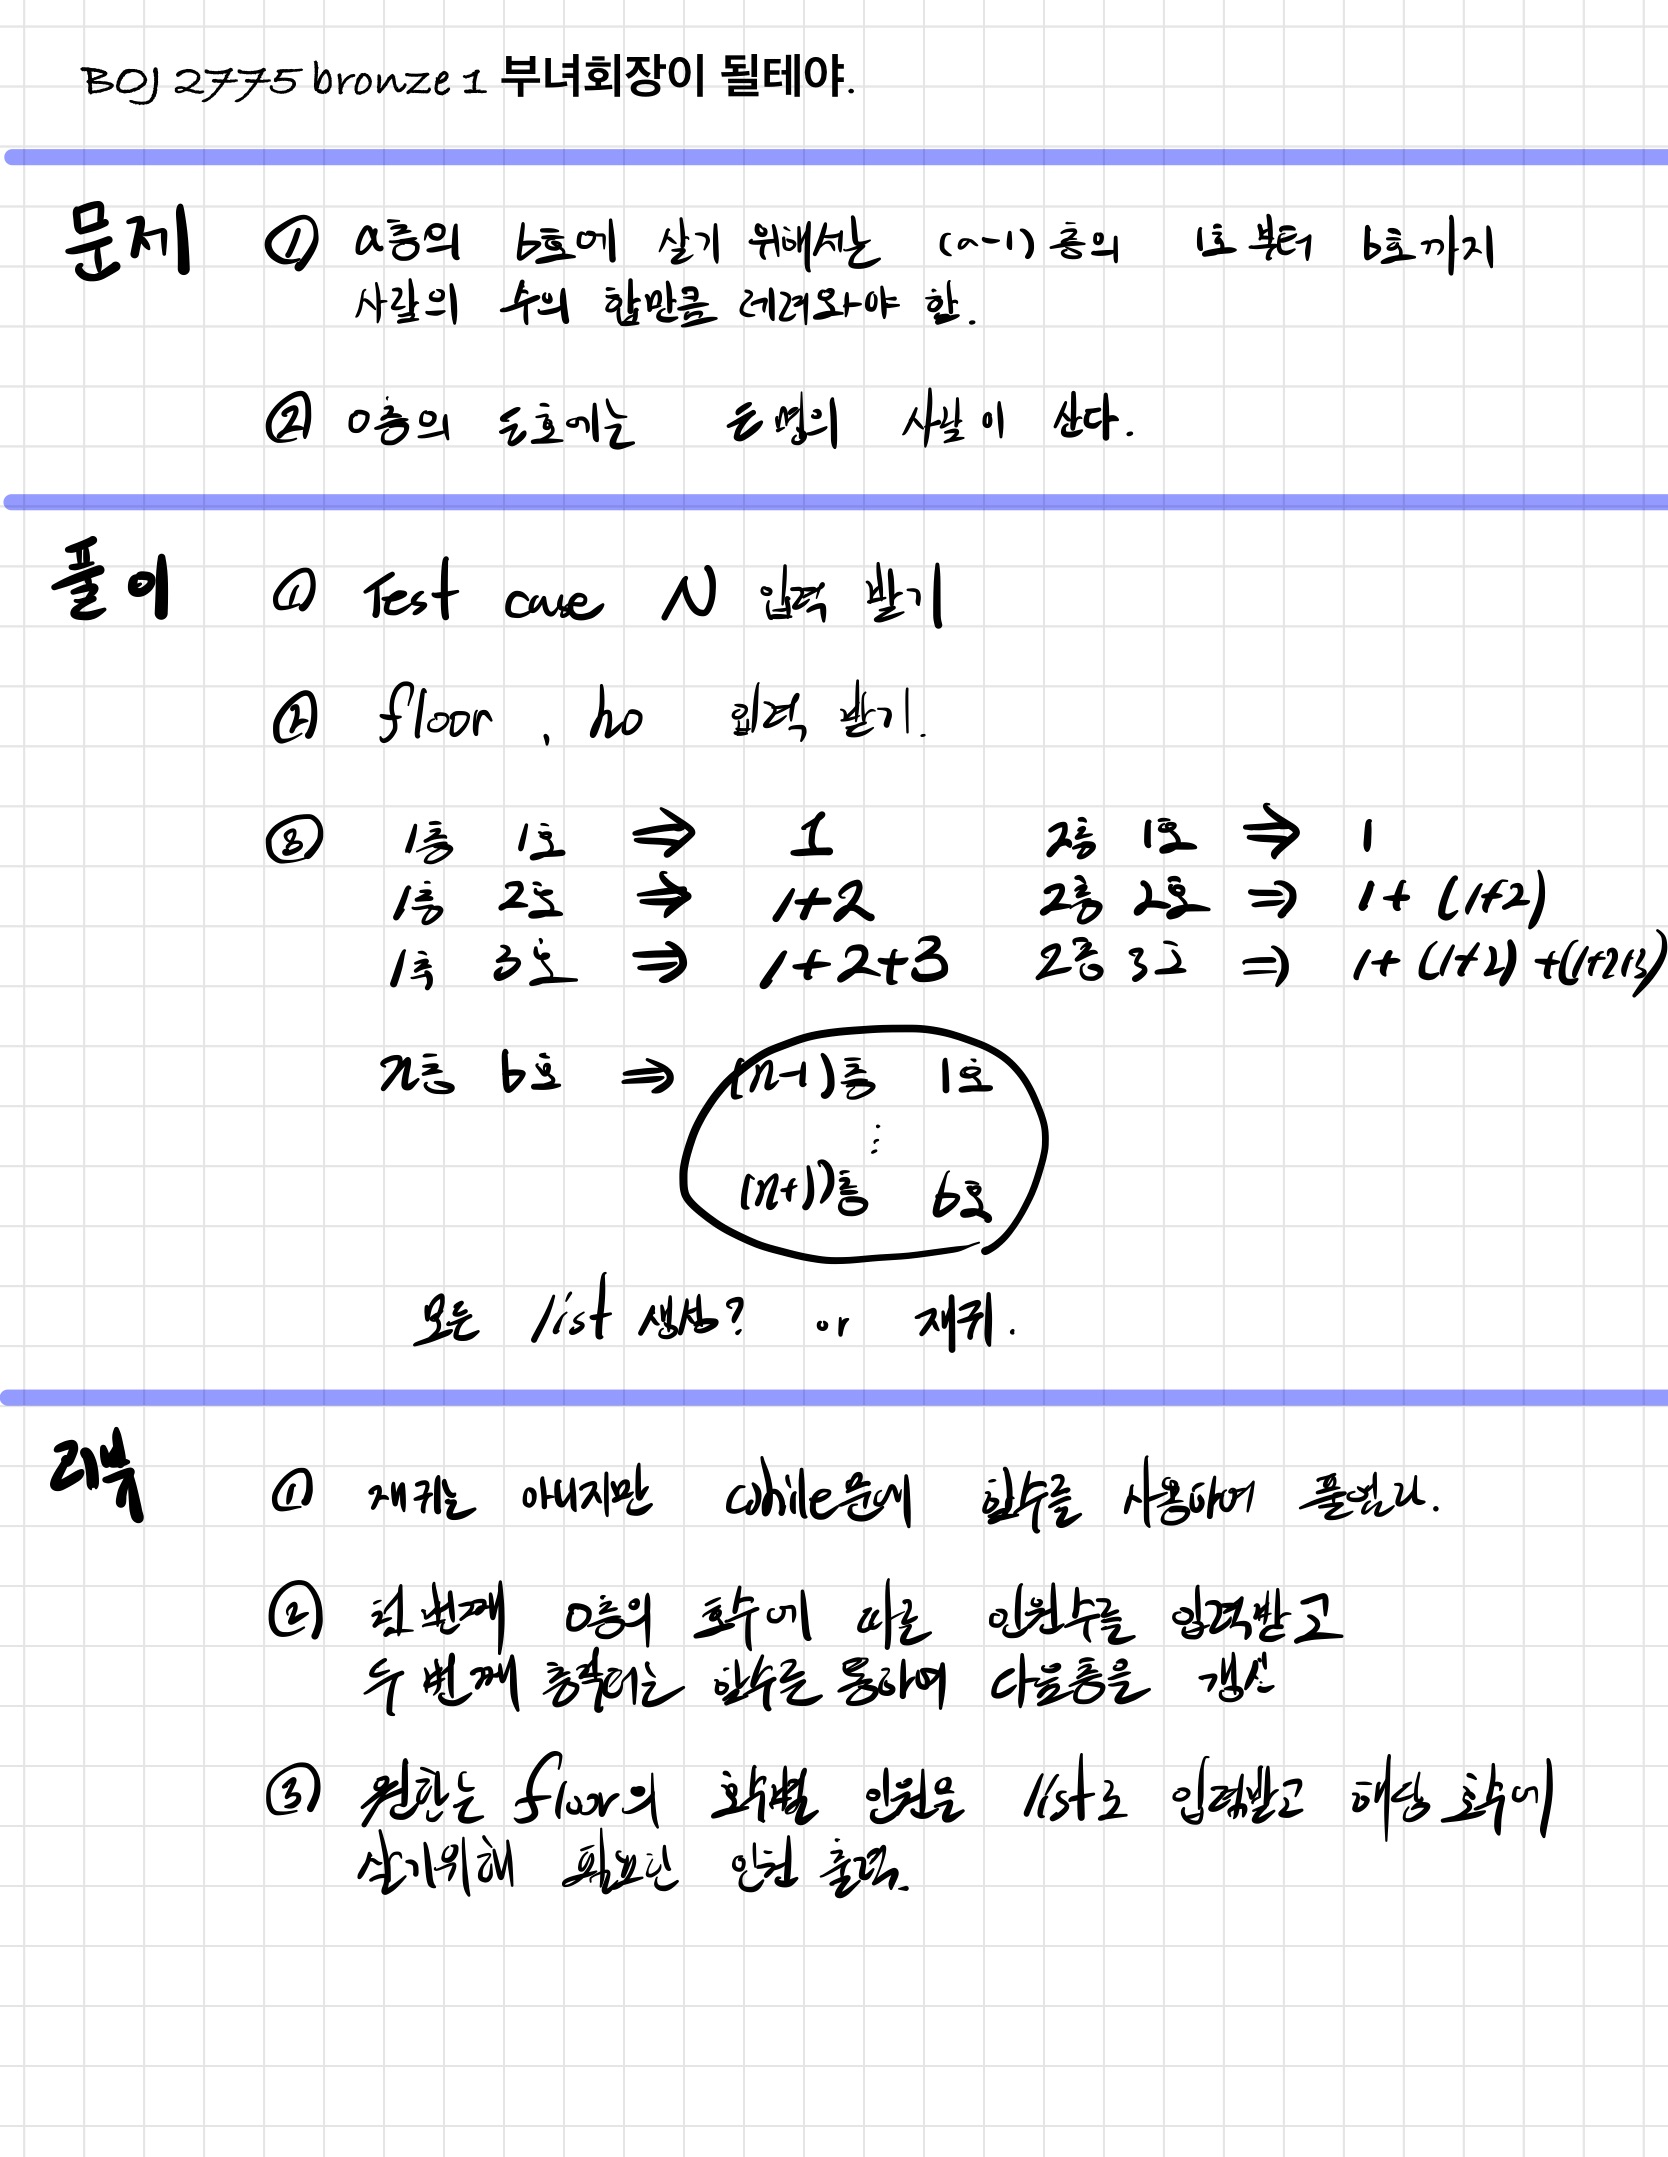 BOJ 2775 bronze 1 부녀회장이 될테야.
문제 ① a층의 b호에 살기 위해서는 (a-1)층의 1호부터 b호까지
사람의 수의 합만큼 데려와야 함.
② 0층의 호에는 명의 사람이 산다.
풀이 ① Test case N 입력 받기
② floor, ho 입력 받기.
③ 1층 1호 ⇒ 1 2층 1호 ⇒ 1
1층 2호 ⇒ 1+2 2층 2호 ⇒ 1+(1+2)
1층 3호 ⇒ 1+2+3 2층 3호 ⇒ 1+(1+2)+(1+2+3)
n층 b호 ⇒ (n-1)층 1호
⋮
(n+1)층 b호
모든 list 생성? or 재귀.
리뷰 ① 재귀는 아니지만 while문에 함수를 사용하여 풀었다.
② 첫 번째 0층의 호수에 따른 인원수를 입력받고
두 번째 층부터는 함수를 통하여 다음층을 갱신
③ 원하는 floor의 호수별 인원을 list로 입력받고 해당 호수에
살기위해 필요한 인원 출력.